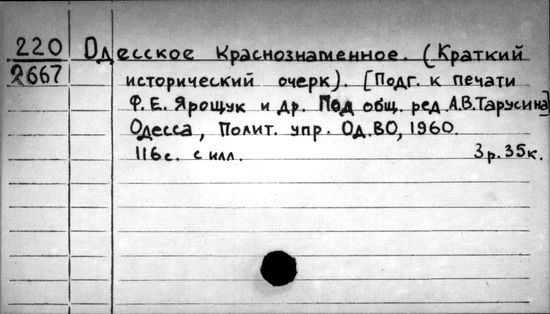 220
2667
Одесское Краснознаменное. (Краткий
исторический очерк). [Подг. к печати
Ф.Е. Ярощук и др. Под общ. ред А.В.Тарусина]
Одесса, Полит. упр. Од.ВО, 1960.
116с. с илл. 3р.35к.